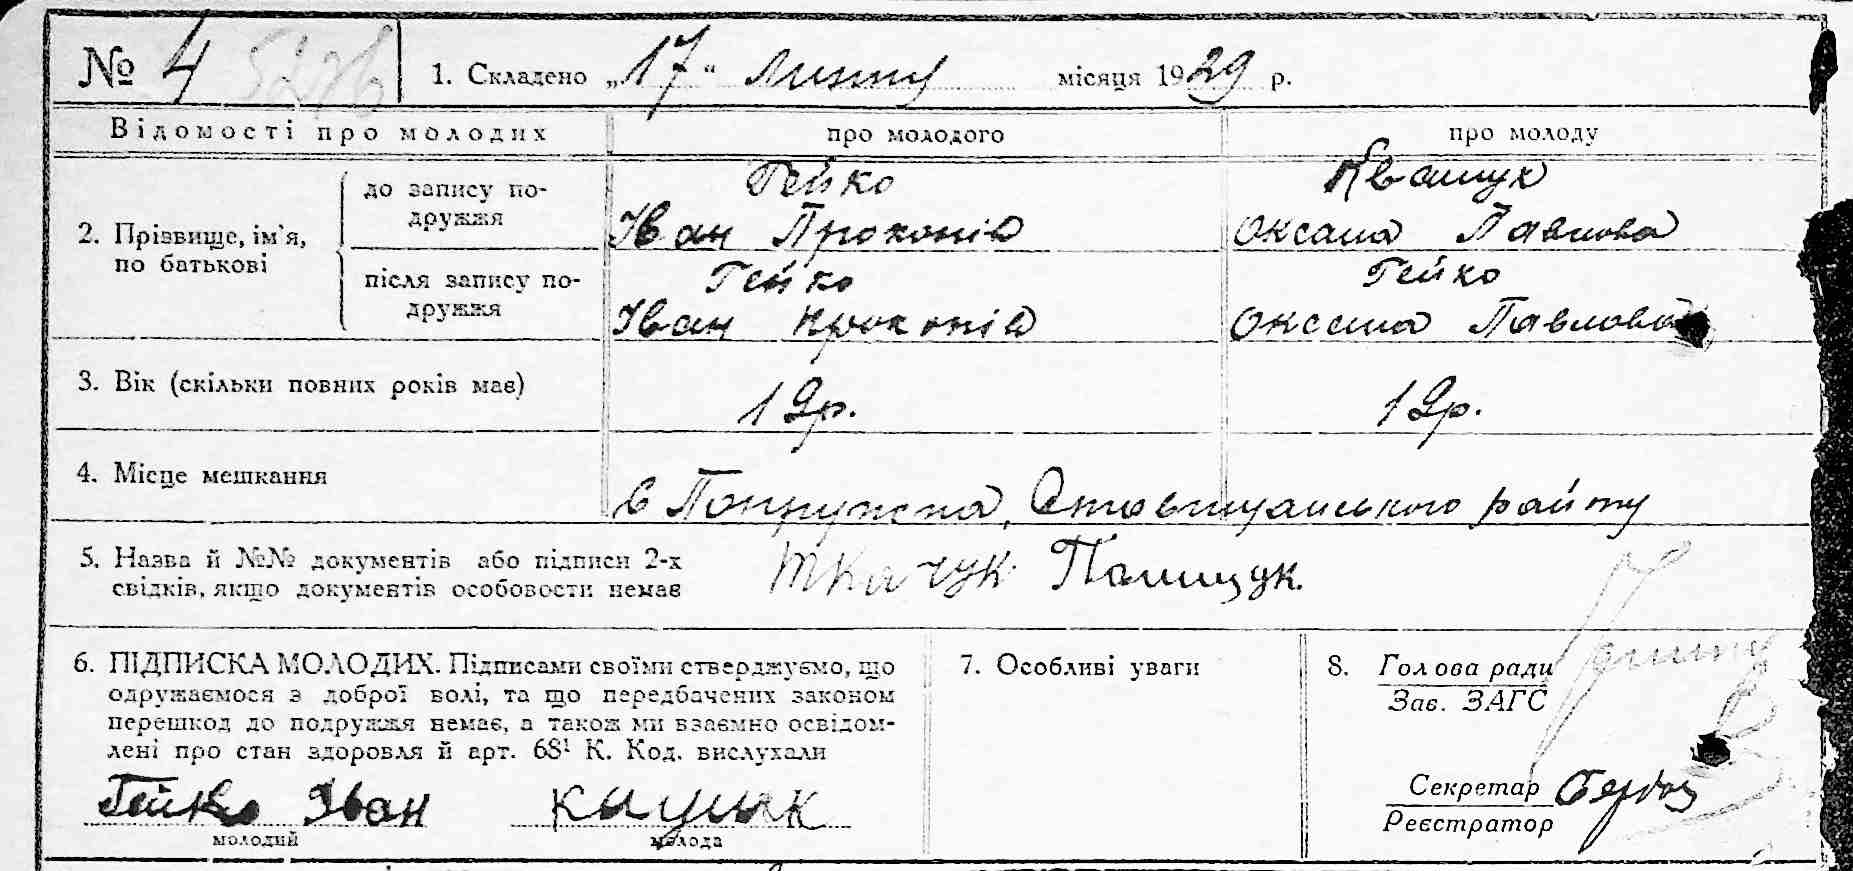 № 4
1. Складено „17“ люту місяця 1929 р.
Відомості про молодих
про молодого
про молоду
2. Прізвище, ім'я, по батькові
до запису по-
дружжя
Гейко
Іван Прокопів
Квашук
Оксана Павлова
після запису по-
дружжя
Гейко
Іван Прокопів
Гейко
Оксана Павлова
3. Вік (скільки повних років має)
19р.
19р.
4. Місце мешкання
в Попружна, Ставищанського району
5. Назва й №№ документів або підписи 2-х
свідків, якщо документів особовости немає
Ткачук Полищук.
6. ПІДПИСКА МОЛОДИХ. Підписами своїми стверджуємо, що
одружаємося з доброї волі, та що передбачених законом
перешкод до подружжя немає, а також ми взаємно освідом-
лені про стан здоровля й арт. 68¹ К. Код. вислухали
Гейко Іван
молодий
молода
7. Особливі уваги
8. Голова ради
Зав. ЗАГС
Секретар
Реєстратор